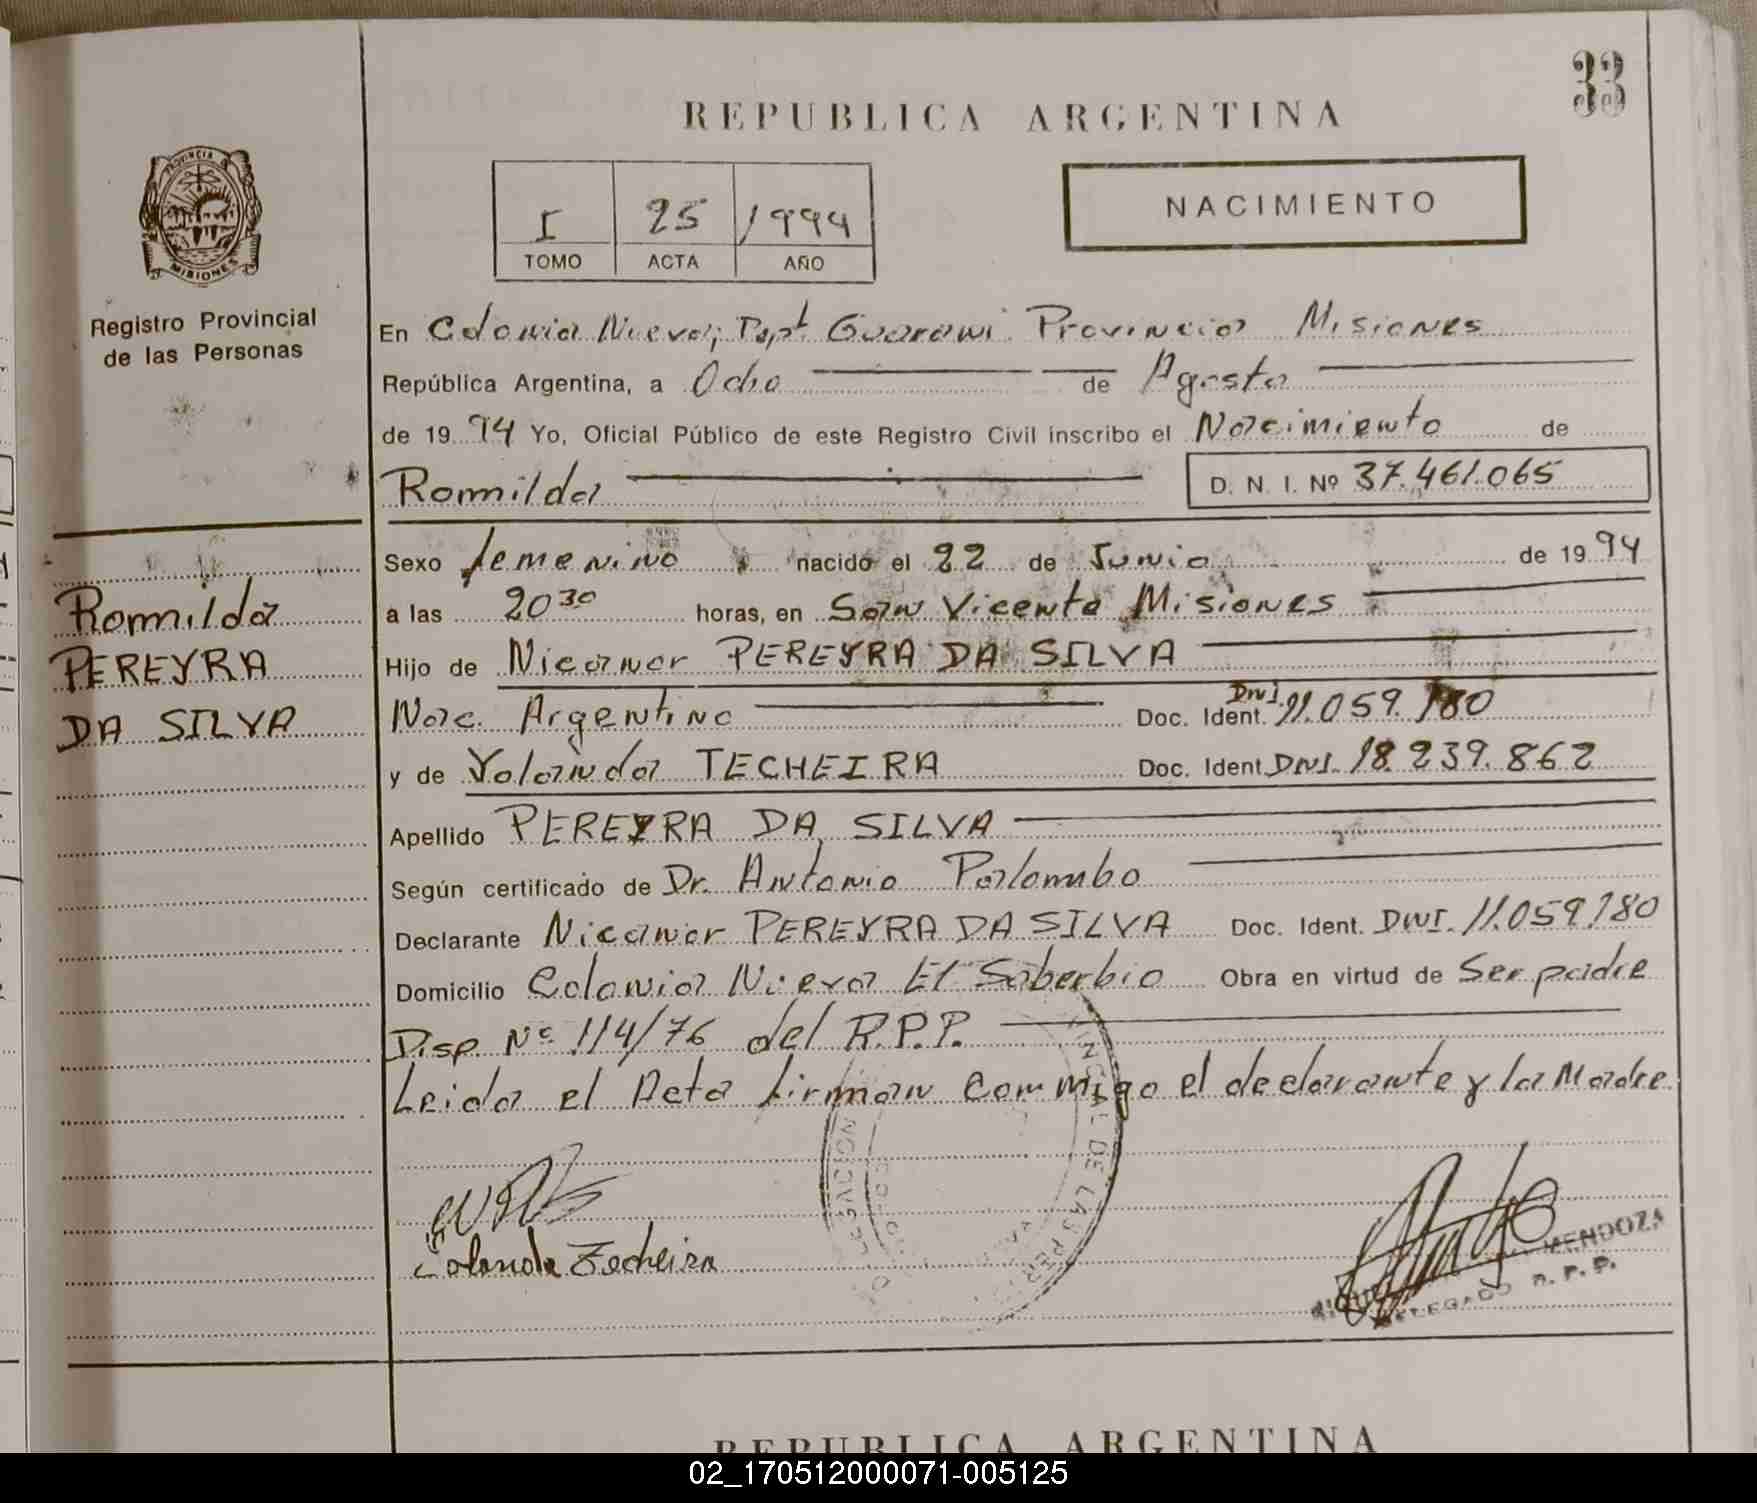 33
REPUBLICA ARGENTINA
PROVINCIA DE
MISIONES
Registro Provincial
de las Personas
I 25 1994
TOMO ACTA AÑO
NACIMIENTO
En Colonia Nueva; Dept. Guarani Provincia Misiones
República Argentina, a Ocho de Agosto
de 1994 Yo, Oficial Público de este Registro Civil inscribo el Nacimiento de
Romilda D. N. I. Nº 37.461.065
Romilda
PEREYRA
DA SILVA
Sexo femenino nacido el 22 de Junio de 1994
a las 20 30 horas, en San Vicente Misiones
Hijo de Nicanor PEREYRA DA SILVA
Nac. Argentino Doc. Ident. DNI. 11.059.180
y de Yolanda TECHEIRA Doc. Ident. DNI. 18.239.862
Apellido PEREYRA DA SILVA
Según certificado de Dr. Antonio Palombo
Declarante Nicanor PEREYRA DA SILVA Doc. Ident. DNI. 11.059.180
Domicilio Colonia Nueva El Soberbio Obra en virtud de Ser padre
Disp. Nº 114/76 del R.P.P.
Leida el Acta firman conmigo el declarante y la Madre
DE LAS PER
DELEGACION
Iolanda Techeira
MENDOZA
DELEGADO R. P. P.
REPUBLICA ARGENTINA
02_170512000071-005125